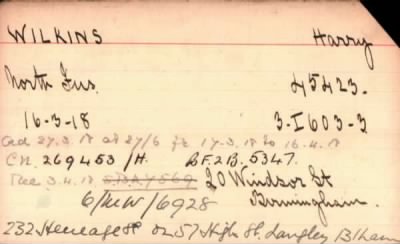 WILKINS Harry
North Fus. 45423.
16-3-18 3-I603-3
27.3.18 at 27/6 fr 17-3.18 to 16.4.18
CN. 269453/H. BF2B. 5347.
3.4.18 20 Windsor St
6/MW/6928 Birmingham.
232 Heneage St or 57 High St. Langley B'Ham